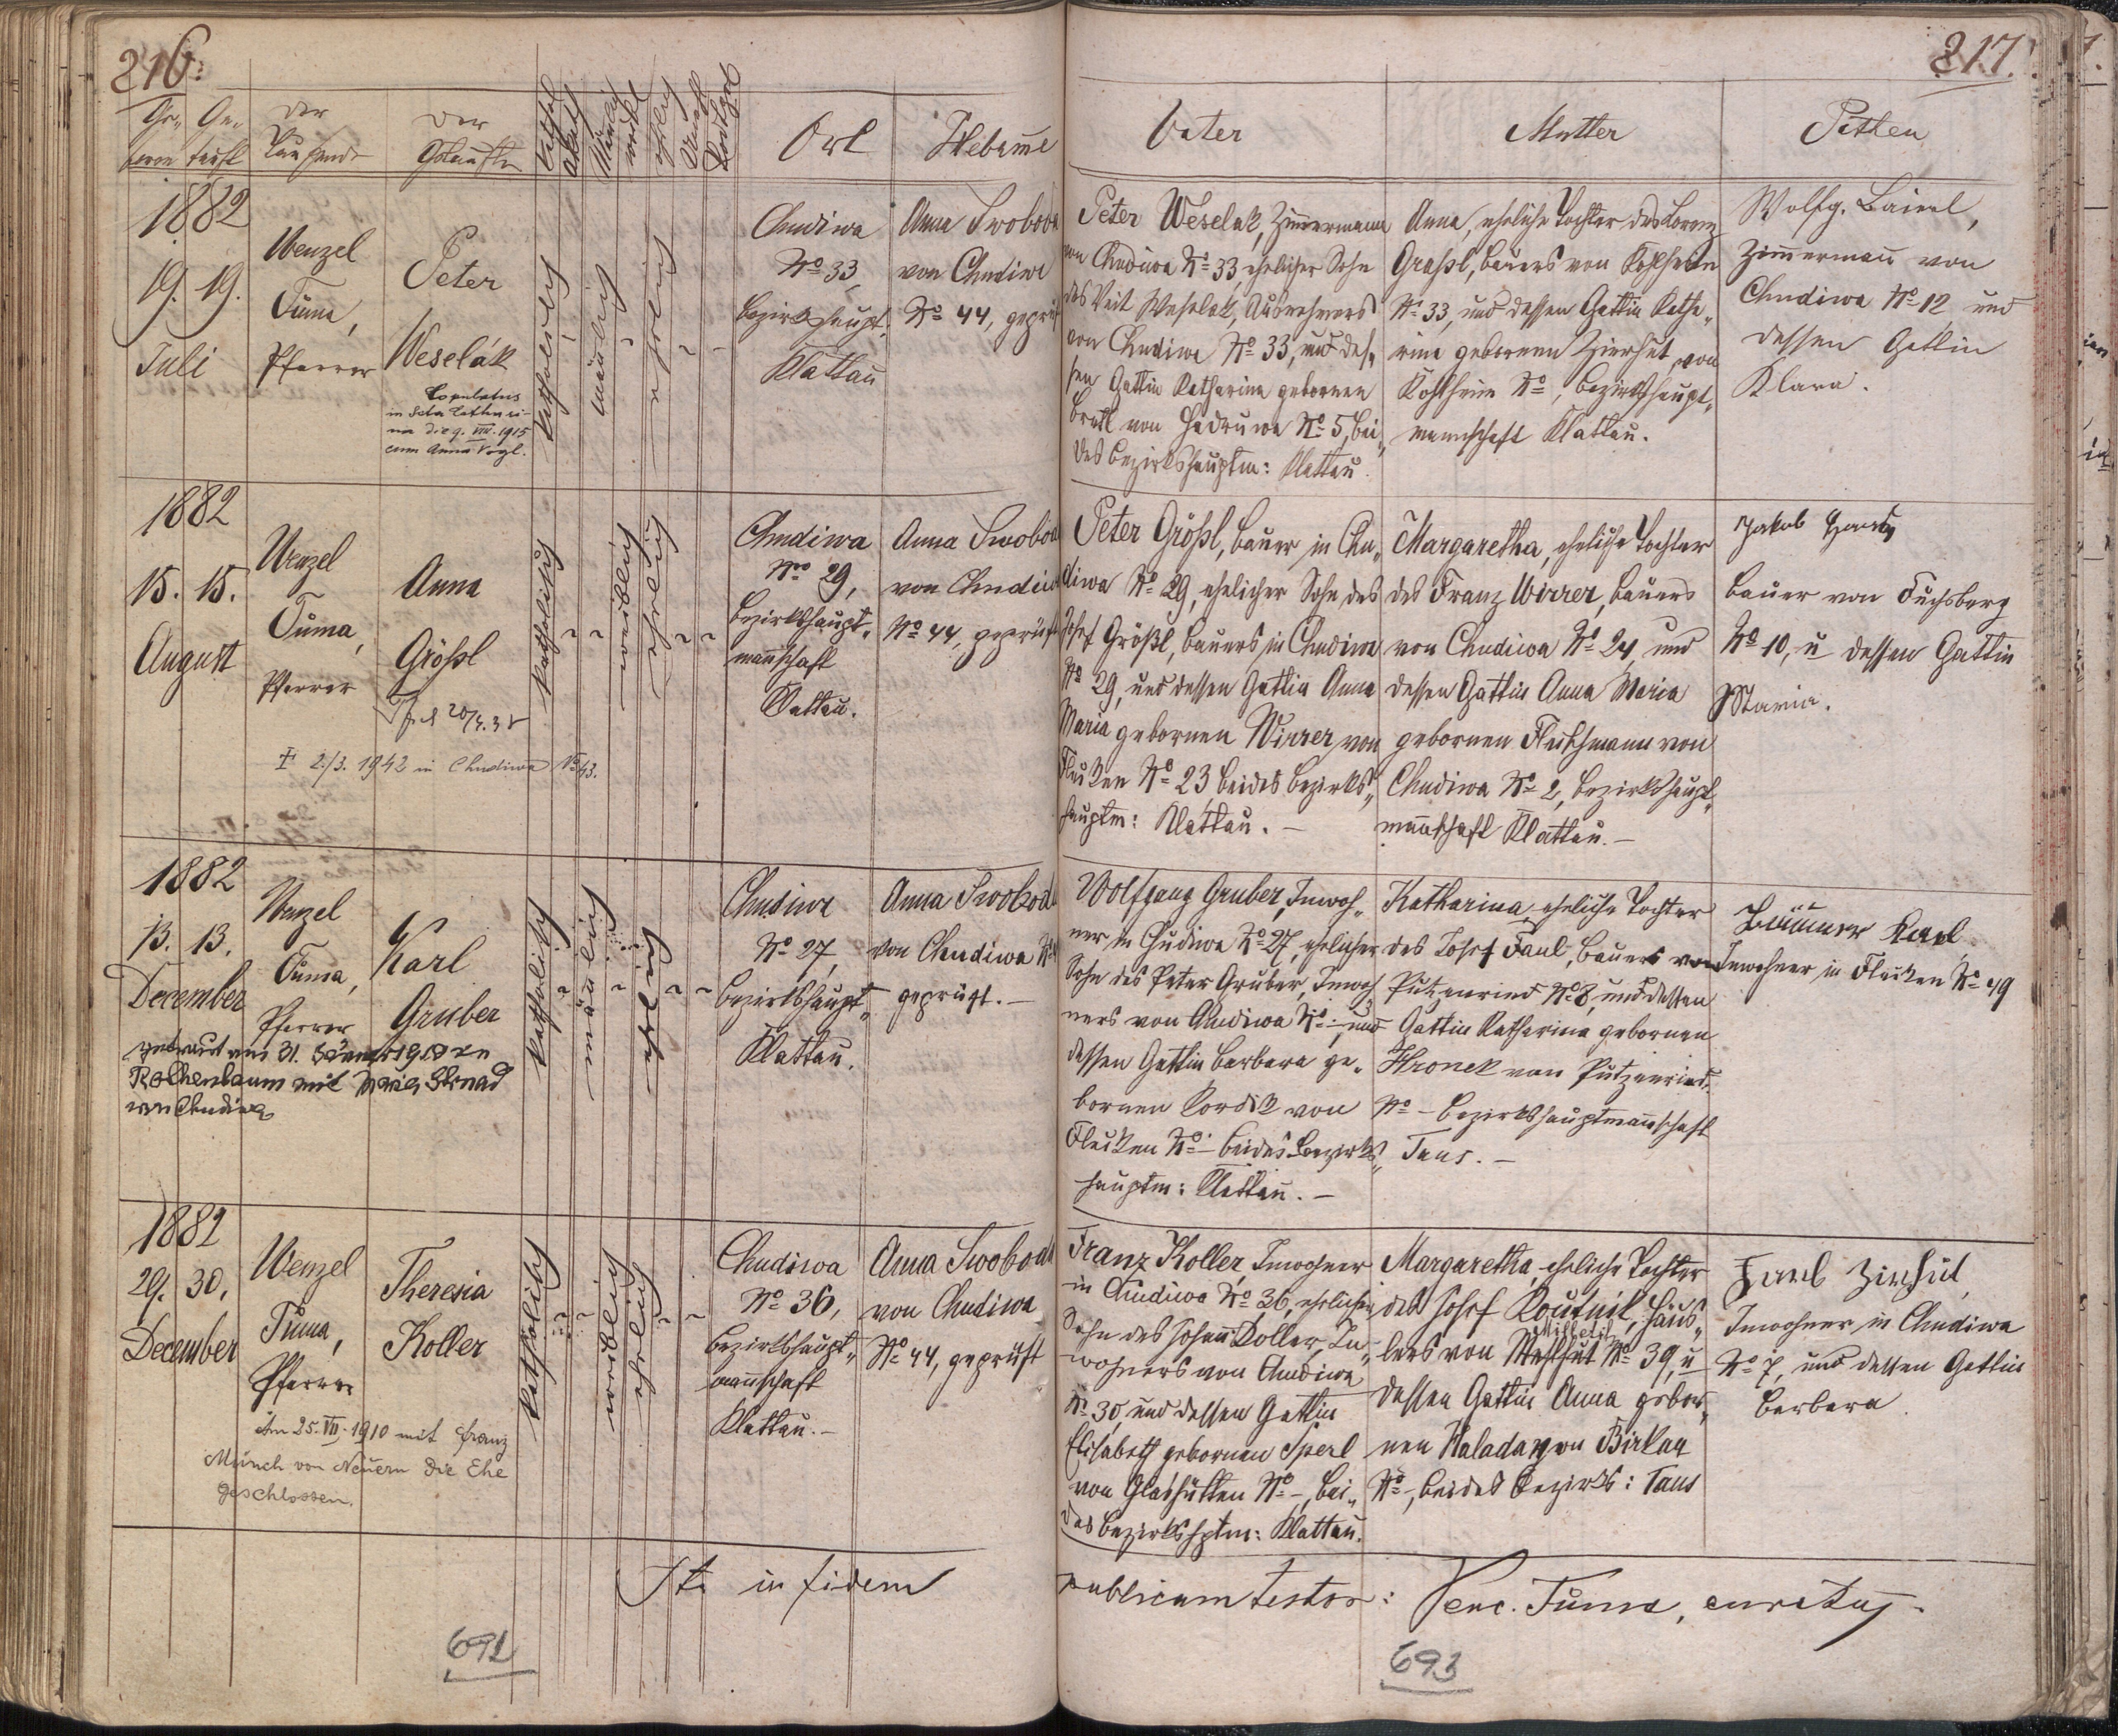 216.
Ge- Ge-
boren tauft
der Taufende
der Getaufte
männlich
ehelich
Ort
Hebamme
1882
19. 19.
Juli
Wenzel
Tuma,
Pfarrer
Peter
Weselák
Copulatus
in Scta Catharina
die 9. VIII. 1915
cum Anna Vogl.
katholisch
männlich
ehelich
Chudiwa
No 33,
Bezirkshaupt.
Klattau
Anna Swoboda
von Chudiwa
No 44, geprüft
1882
15. 15.
August
Wenzel
Tuma,
Pfarrer
Anna
Größl
† 2./3. 1942 in Chudiwa No 43.
katholisch
weiblich
ehelich
Chudiwa
No 29,
Bezirkshaupt-
mannschaft
Klattau.
Anna Swoboda
von Chudiwa
No 44, geprüft
1882
13. 13.
December
Wenzel
Tuma,
Pfarrer
Karl
Gruber
getraut am 31. Jänner
Rothenbaum mit Strnad
von Chudiwa
katholisch
männlich
ehelich
Chudiwa
No 27,
Bezirkshaupt-
Klattau.
Anna Swoboda
von Chudiwa No
geprüft. —
1882
29. 30.
December
Wenzel
Tuma,
Pfarrer
Theresia
Koller
Am 25. VII. 1910 mit Franz
Münch von Neuern die Ehe
geschlossen.
katholisch
weiblich
ehelich
Chudiwa
No 36,
Bezirkshaupt-
mannschaft
Klattau. —
Anna Swoboda
von Chudiwa
No 44, geprüft
Ita in fidem
692
217.
Vater
Mutter
Pathen
Peter Weselak, Zimmermann
von Chudiwa No 33, ehelicher Sohn
des Veit Weselak, Ausnehmers
von Chudiwa No 33, und des-
sen Gattin Katharina gebornen
von No 5, bei-
des Bezirkshauptm: Klattau.
Anna, eheliche Tochter des Lorenz
Graßl, Bauers von Kohlheim
No 33, und dessen Gattin Katha-
rina gebornen Zierhut von
Kohlheim No, Bezirkshaupt-
mannschaft Klattau.
Wolfg. Baierl,
Zimmermann von
Chudiwa No 12 und
dessen Gattin
Klara.
Peter Größl, Bauer in Chu-
diwa No 29, ehelicher Sohn des
Josef Größl, Bauers in Chudiwa
No 29, und dessen Gattin Anna
Maria gebornen Wirrer von
Flecken No 23 beides Bezirks-
hauptm: Klattau. —
Margaretha, eheliche Tochter
des Franz Wirrer, Bauers
von Chudiwa No 24 und
dessen Gattin Anna Maria
gebornen von
Chudiwa No 2, Bezirkshaupt-
mannschaft Klattau. —
Jakob
Bauer von Fuchsberg
No 10, u dessen Gattin
Maria.
Wolfgang Gruber, Inwoh-
ner in Chudiwa No 27, ehelicher
Sohn des Peter Gruber, Inwoh-
ners von Chudiwa No -, und
dessen Gattin Barbara ge-
bornen Kordik von
Flecken No - beides Bezirks-
hauptm: Klattau. —
Katharina, eheliche Tochter
des Josef Faul, Bauers von
Putzenried No 8, und dessen
Gattin Katharina gebornen
Hronek von Putzenried
No - Bezirkshauptmannschaft
Taus. —
Karl
Inwohner in Flecken No 49
Franz Koller, Inwohner
in Chudiwa No 36, ehelicher
Sohn des Johann Koller, In-
wohners von Chudiwa
No 30, und dessen Gattin
Elisabeth gebornen Sperl
von Glashütten No -, bei-
des Bezirkshptm: Klattau.
Margaretha, eheliche Tochter
des Josef Koutnik, Häus-
lers von No 39, u
dessen Gattin Anna gebor-
nen Halada von Birkau
No -, beides Bezirks: Taus
Karl Zierhut,
Inwohner in Chudiwa
No 7, und dessen Gattin
Barbara.
publicam testor: Venc. Tuma, curatus.
693